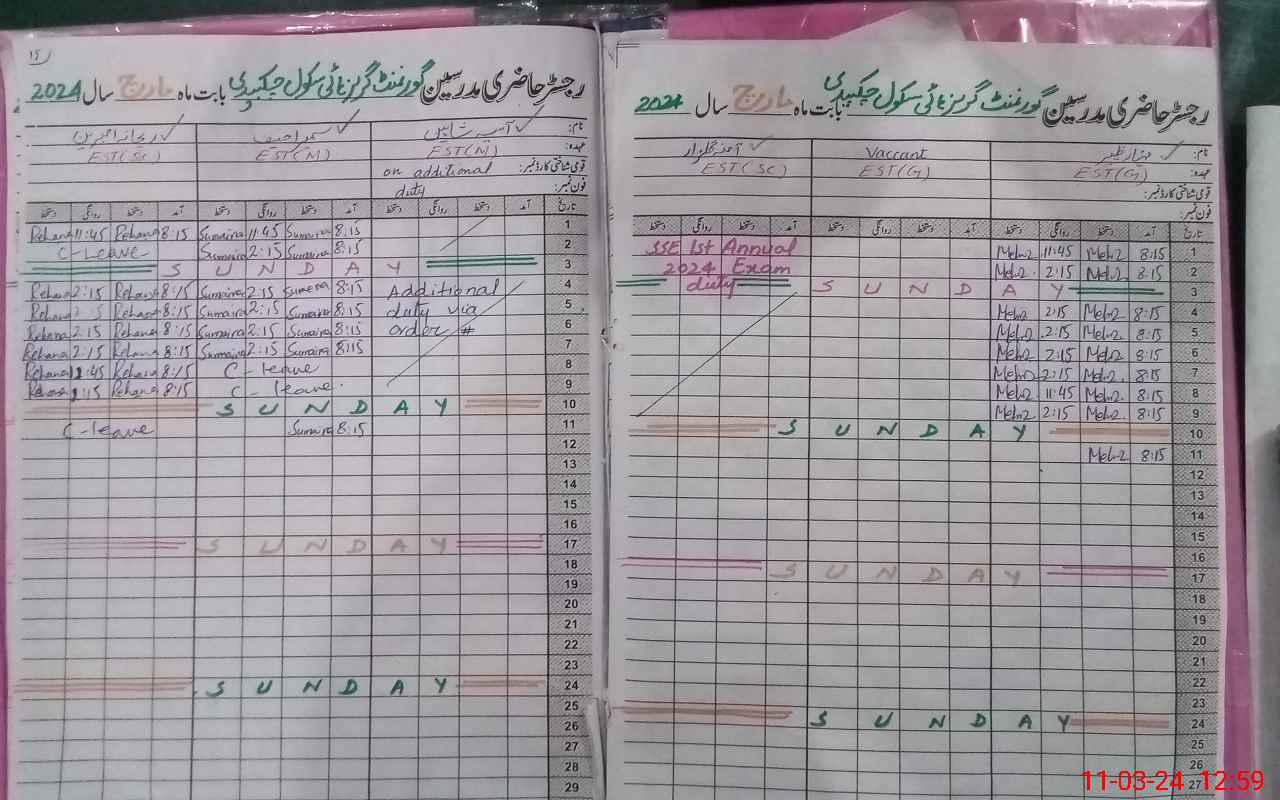 15
رجسٹر حاضری مدرسین گورنمنٹ گرلز ہائی سکول چکبیدی بابت ماہ مارچ سال 2024
نام: آسیہ شاہین سمیرا حنیف ریحانہ امبرین
عہدہ: EST(M) EST(M) EST(Sc)
قومی شناختی کارڈ نمبر: on additional
فون نمبر: duty
تاریخ آمد دستخط روانگی دستخط آمد دستخط روانگی دستخط آمد دستخط روانگی دستخط
Rehana 11:45 Rehana 8:15 Sumaira 11:45 Sumaira 8:15 1
C-Leave Sumaira 2:15 Sumaira 8:15 2
S U N D A Y 3
Rehana 2:15 Rehana 8:15 Sumaira 2:15 Sumera 8:15 Additional 4
Rehana 2:15 Rehana 8:15 Sumaira 2:15 Sumaira 8:15 duty via 5
Rehana 2:15 Rehana 8:15 Sumaira 2:15 Sumaira 8:15 order # 6
Rehana 2:15 Rehana 8:15 Sumaira 2:15 Sumaira 8:15 7
Rehana 11:45 Rehana 8:15 C-leave 8
Rehana 2:15 Rehana 8:15 C-leave. 9
S U N D A Y 10
C-leave Sumaira 8:15 11
12
13
14
15
16
S U N D A Y 17
18
19
20
21
22
23
S U N D A Y 24
25
26
27
28
29
رجسٹر حاضری مدرسین گورنمنٹ گرلز ہائی سکول چکبیدی بابت ماہ مارچ سال 2024
نام: آمنہ گلزار
عہدہ: EST(G) Vaccant EST(G) EST(Sc)
قومی شناختی کارڈ نمبر:
فون نمبر:
تاریخ آمد دستخط روانگی دستخط آمد دستخط روانگی دستخط آمد دستخط روانگی دستخط
SSE 1st Annual 11:45 8:15 1
2024 Exam 2:15 8:15 2
duty S U N D A Y 3
2:15 8:15 4
2:15 8:15 5
2:15 8:15 6
2:15 8:15 7
11:45 8:15 8
2:15 8:15 9
S U N D A Y 10
8:15 11
12
13
14
15
16
S U N D A Y 17
18
19
20
21
22
23
S U N D A Y 24
25
26
27
11-03-24 12:59